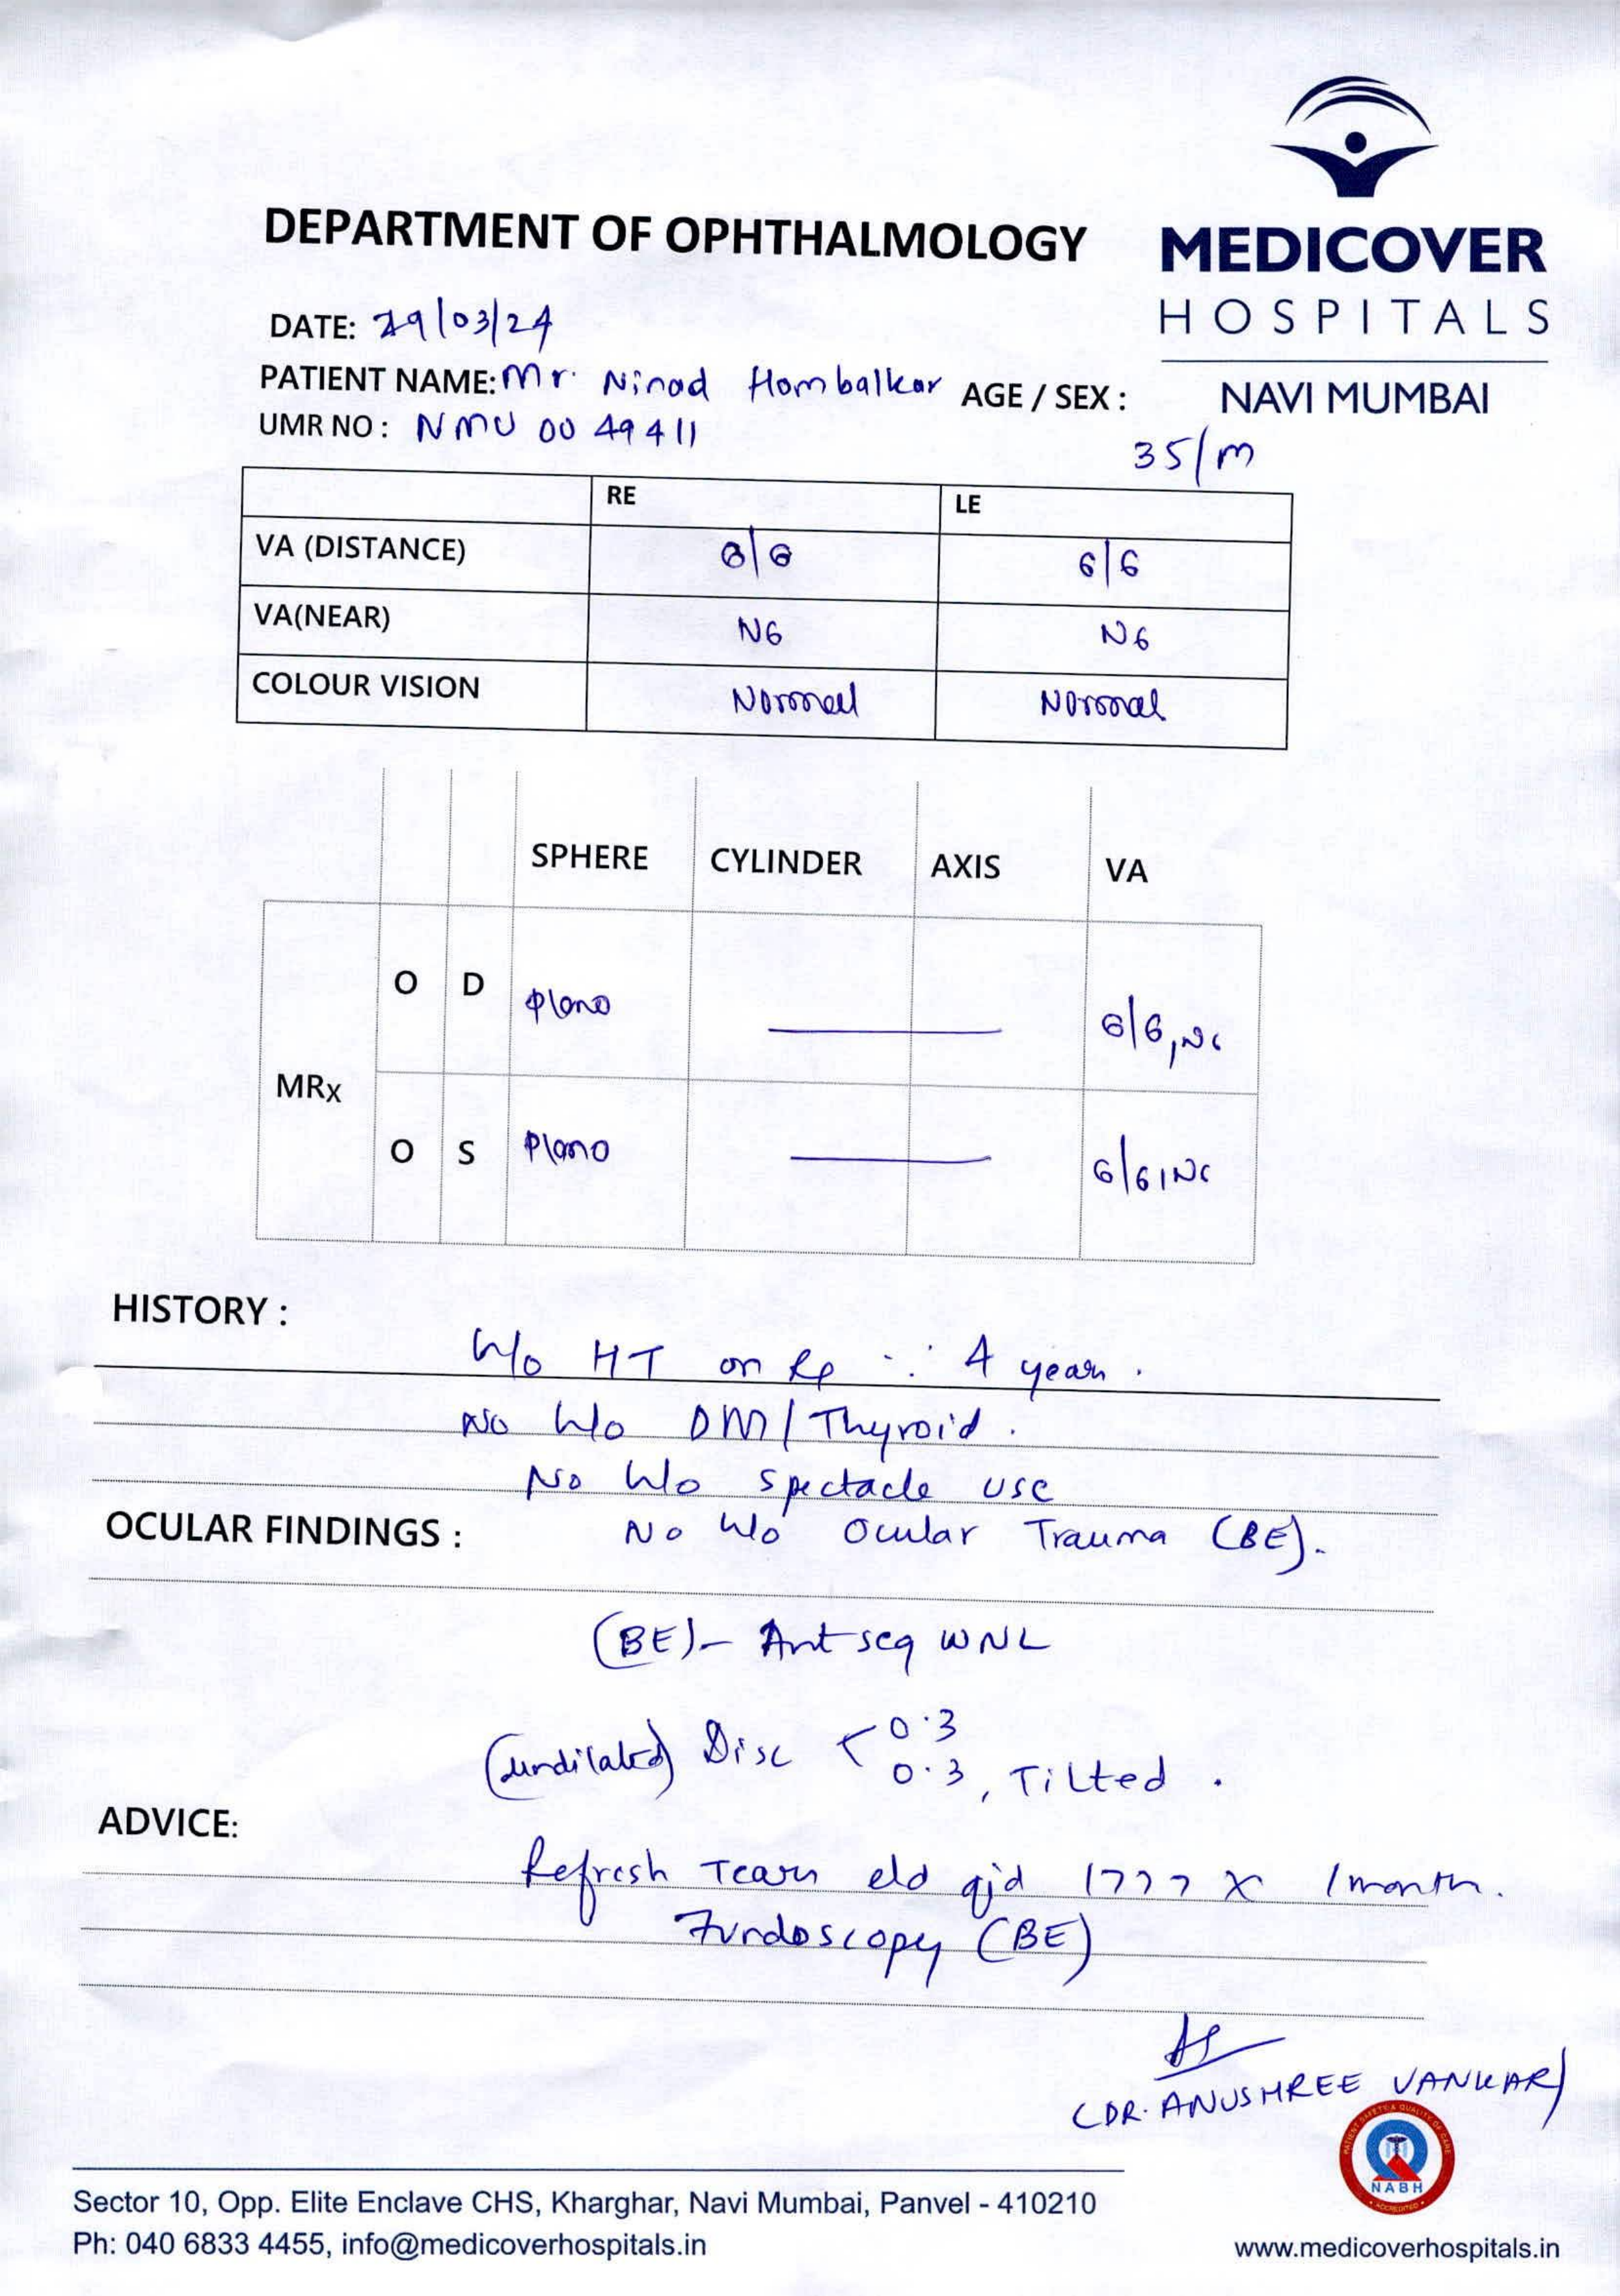 DEPARTMENT OF OPHTHALMOLOGY
MEDICOVER
HOSPITALS
NAVI MUMBAI
DATE: 29/03/24
PATIENT NAME: Mr. Ninad Hombalkar AGE / SEX :
35/m
UMR NO : NMU 00 49411
RE LE
VA (DISTANCE) 6/6 6/6
VA(NEAR) N6 N6
COLOUR VISION Normal Normal
SPHERE CYLINDER AXIS VA
O D Plano 6/6, N6
MRx
O S Plano 6/6, N6
HISTORY :
H/o HT on Rx ∴ 4 years.
No H/o DM/Thyroid.
No H/o spectacle use
No H/o Ocular Trauma (BE).
OCULAR FINDINGS :
(BE) - Ant seg WNL
(undilated) Disc < 0.3
0.3, Tilted.
ADVICE:
Refresh Tears e/d qid 1777 x 1 month.
Fundoscopy (BE)
(DR. ANUSHREE VANKAR)
PATIENT SAFETY & QUALITY OF CARE
NABH
ACCREDITED
Sector 10, Opp. Elite Enclave CHS, Kharghar, Navi Mumbai, Panvel - 410210
Ph: 040 6833 4455, info@medicoverhospitals.in
www.medicoverhospitals.in